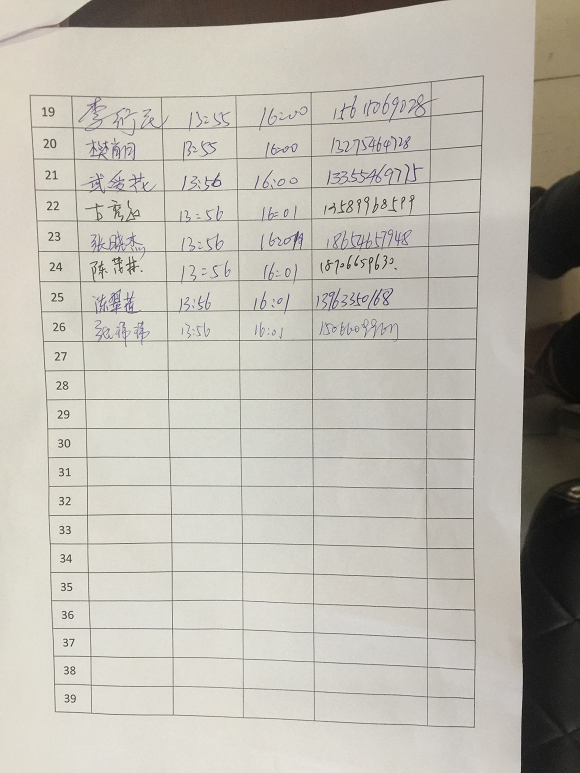 19 李 13:55 16:00 15615069028
20 樊 13:55 16:00 13275464728
21 武 花 13:56 16:00 13355469775
22 13:56 16:01 13589968599
23 张晓杰 13:56 18654657948
24 陈 林 13:56 16:01 18706659630
25 陈翠 13:56 16:01 13963350168
26 13:56 16:01
27
28
29
30
31
32
33
34
35
36
37
38
39